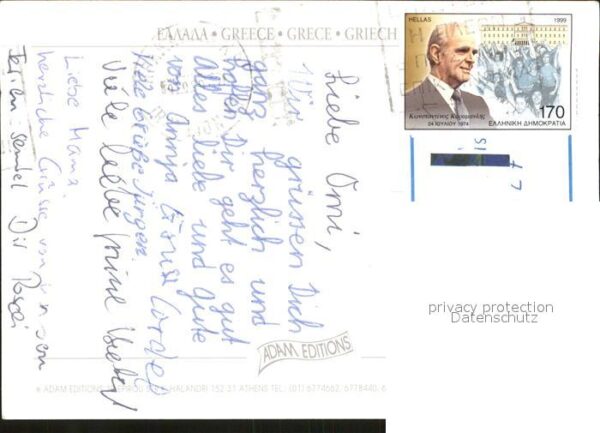 ΕΛΛΑΔΑ • GREECE • GRECE • GRIECH
HELLAS 1999
Κωνσταντίνος Καραμανλής
24 ΙΟΥΛΙΟΥ 1974
170
ΕΛΛΗΝΙΚΗ ΔΗΜΟΚΡΑΤΙΑ
Liebe Omi,
Wir grüssen Dich
ganz herzlich und
hoffen Dir geht es gut
Alles liebe und Gute
von Annja
Viele Grüße Jürgen
Viele liebe
Liebe Mama,
herzliche Grüße von
sendet Dir
ADAM EDITIONS
ADAM EDITIONS HALANDRI 152-31 ATHENS TEL. (01) 6774662, 6778440,
privacy protection
Datenschutz